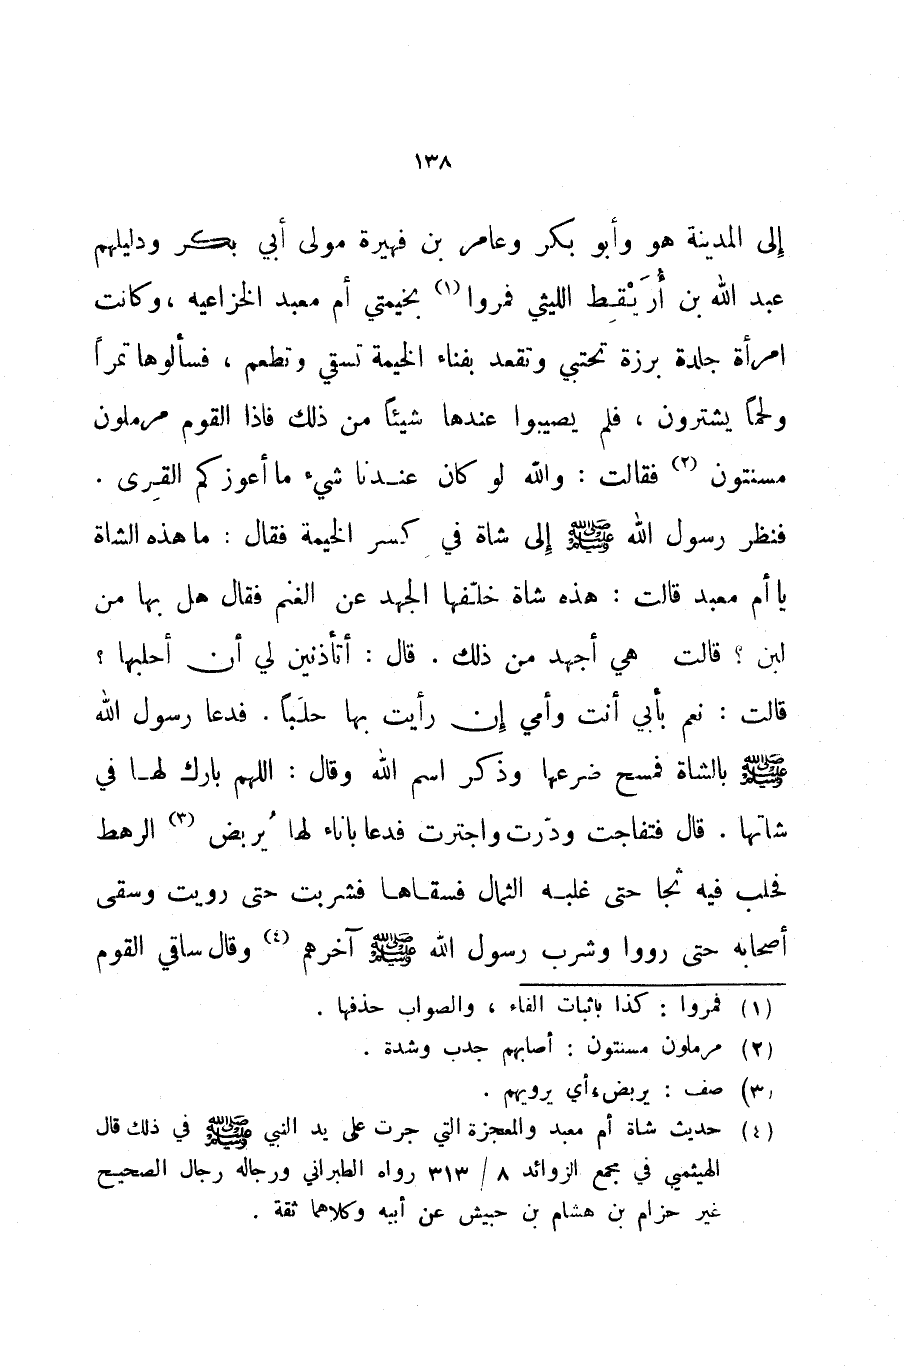 ١٣٨
إلى المدينة هو وأبو بكر وعامر بن فهيرة مولى أبي بكر ودليلهم
عبد الله بن أُرَيْقِط الليثي فمروا (١) بخيمتي أم معبد الخزاعيه ، وكانت
امرأة جلدة برزة تحتبي وتقعد بفناء الخيمة تسقي وتطعم ، فسألوها تمراً
ولحماً يشترون ، فلم يصيبوا عندها شيئاً من ذلك فاذا القوم مرملون
مسنتون (٢) فقالت : والله لو كان عندنا شيء ما أعوزكم القِرى .
فنظر رسول الله ﷺ إلى شاة في كسر الخيمة فقال : ما هذه الشاة
يا أم معبد قالت : هذه شاة خلّفها الجهد عن الغنم فقال هل بها من
لبن ؟ قالت هي أجهد من ذلك . قال : أتأذنين لي أن أحلبها ؟
قالت : نعم بأبي أنت وأمي إن رأيت بها حلَباً . فدعا رسول الله
ﷺ بالشاة فمسح ضرعها وذكر اسم الله وقال : اللهم بارك لها في
شاتها . قال فتفاجت ودّرت واجترت فدعا باناء لها يُربض (٣) الرهط
فحلب فيه ثجا حتى غلبه الثمال فسقاها فشربت حتى رويت وسقى
أصحابه حتى رووا وشرب رسول الله ﷺ آخرهم (٤) وقال ساقي القوم
(١) فمروا : كذا باثبات الفاء ، والصواب حذفها .
(٢) مرملون مسنتون : أصابهم جدب وشدة .
(٣) صف : يربض،أي يرويهم .
(٤) حديث شاة أم معبد والمعجزة التي جرت على يد النبي ﷺ في ذلك قال
الهيثمي في مجمع الزوائد ٨ / ٣١٣ رواه الطبراني ورجاله رجال الصحيح
غير حزام بن هشام بن حبيش عن أبيه وكلاهما ثقة .